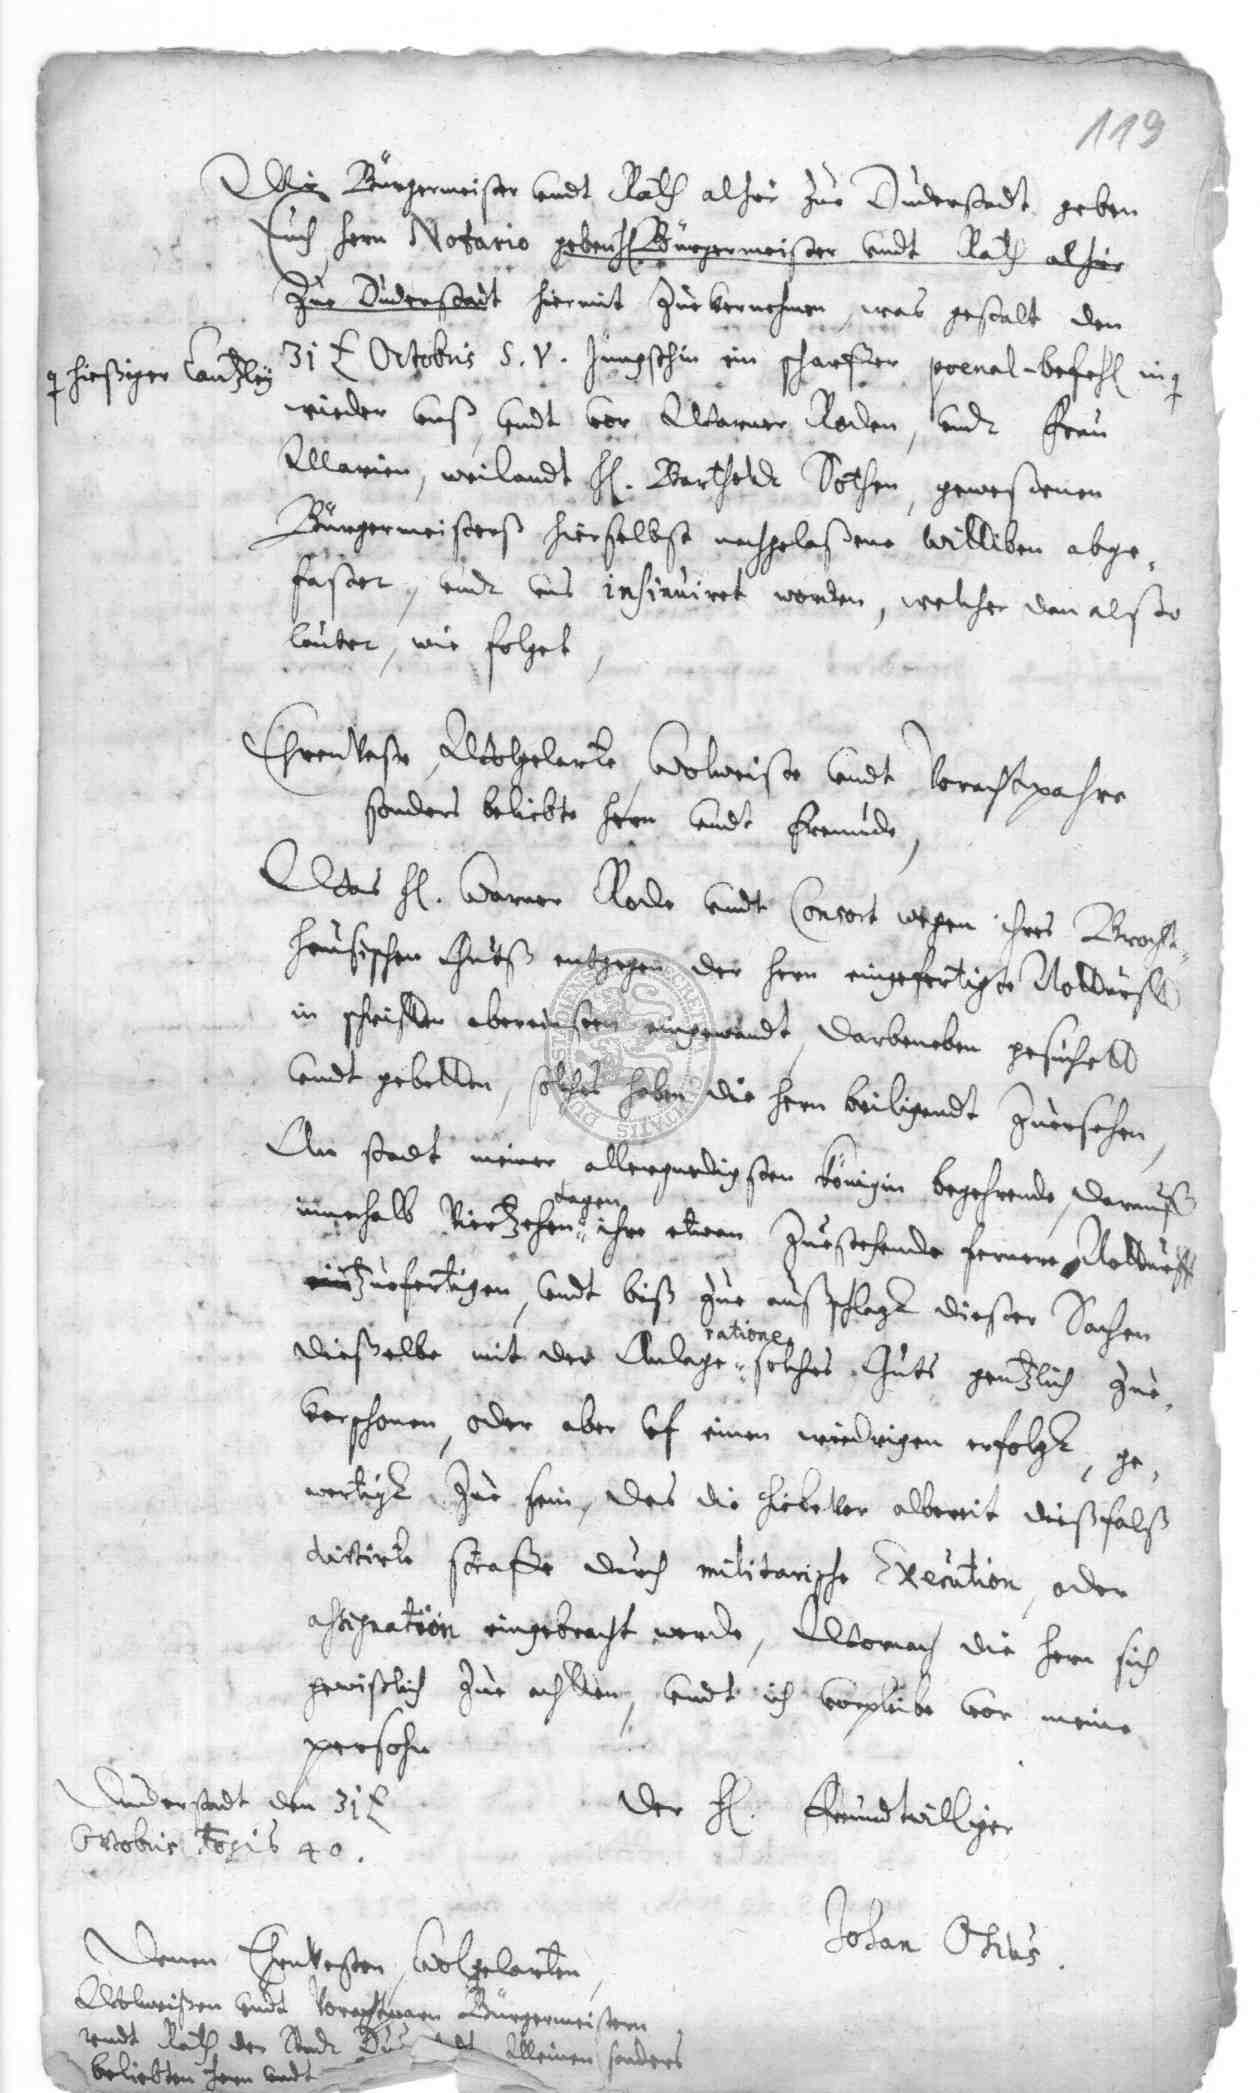 119
Wir Bürgermeister undt Rath alhier zue Duderstadt geben
Euch hern Notario geben H. Bürgermeister undt Rath alhier
zue Duderstadt hiermit zuevernehmen, was gestalt den
31 t Octobris S. V. jüngsthin ein scharffer poenal-befehl in
hießiger Cantzley
wieder unß, undt vor Warner Roden, undt Frau
Marien, weilandt H. Barthold Söthen, geweßenen
Bürgermeisterß hierselbst nachgelaßene Wittiben abge-
fastet, undt uns insinuiret worden, welcher dan alßo
lautet, wie folget,
Ehrenveste, Wolgelarte, Wolweise undt Vorachtpahre
sonders beliebte hern undt freunde,
Was H. Warner Rode undt Consort wegen ihres Brochte-
heusischen Guets entgegen der hern eingefertigte Notturfft
in schrifften abereinsten eingewandt, darbeneben gesuchett
undt gebetten, solches haben die hern beiligendt zuersehen,
An stadt meiner allergnedigsten Königin begehrende, darauff
innerhalb Viertzehen tagen ihre etwan zuestehende fernere Notturfft
einzuefertigen, undt biß zue außschlagk dieser Sachen
dieselbe mit der Anlage ratione solches Guts gentzlich zue-
verschonen, oder aber uf einen wiedrigen erfolgk, ge-
wertigk zue sein, das die hiebevor albereit dießfalß
dictirte straffe durch militarische Execution, oder
assignation eingebracht werde, Wornach die hern sich
gewißlich zue achten, undt ich verpleibe vor meine
persohn
Duderstadt den 31 t
Octobris 40.
Der H. freundtwilliger
Johan
Denen Ehrnvesten, Wolgelarten,
Wolweißen undt Vorachtparn Bürgermeistern
undt Rath der Stadt Meinen sonders
beliebten hern undt